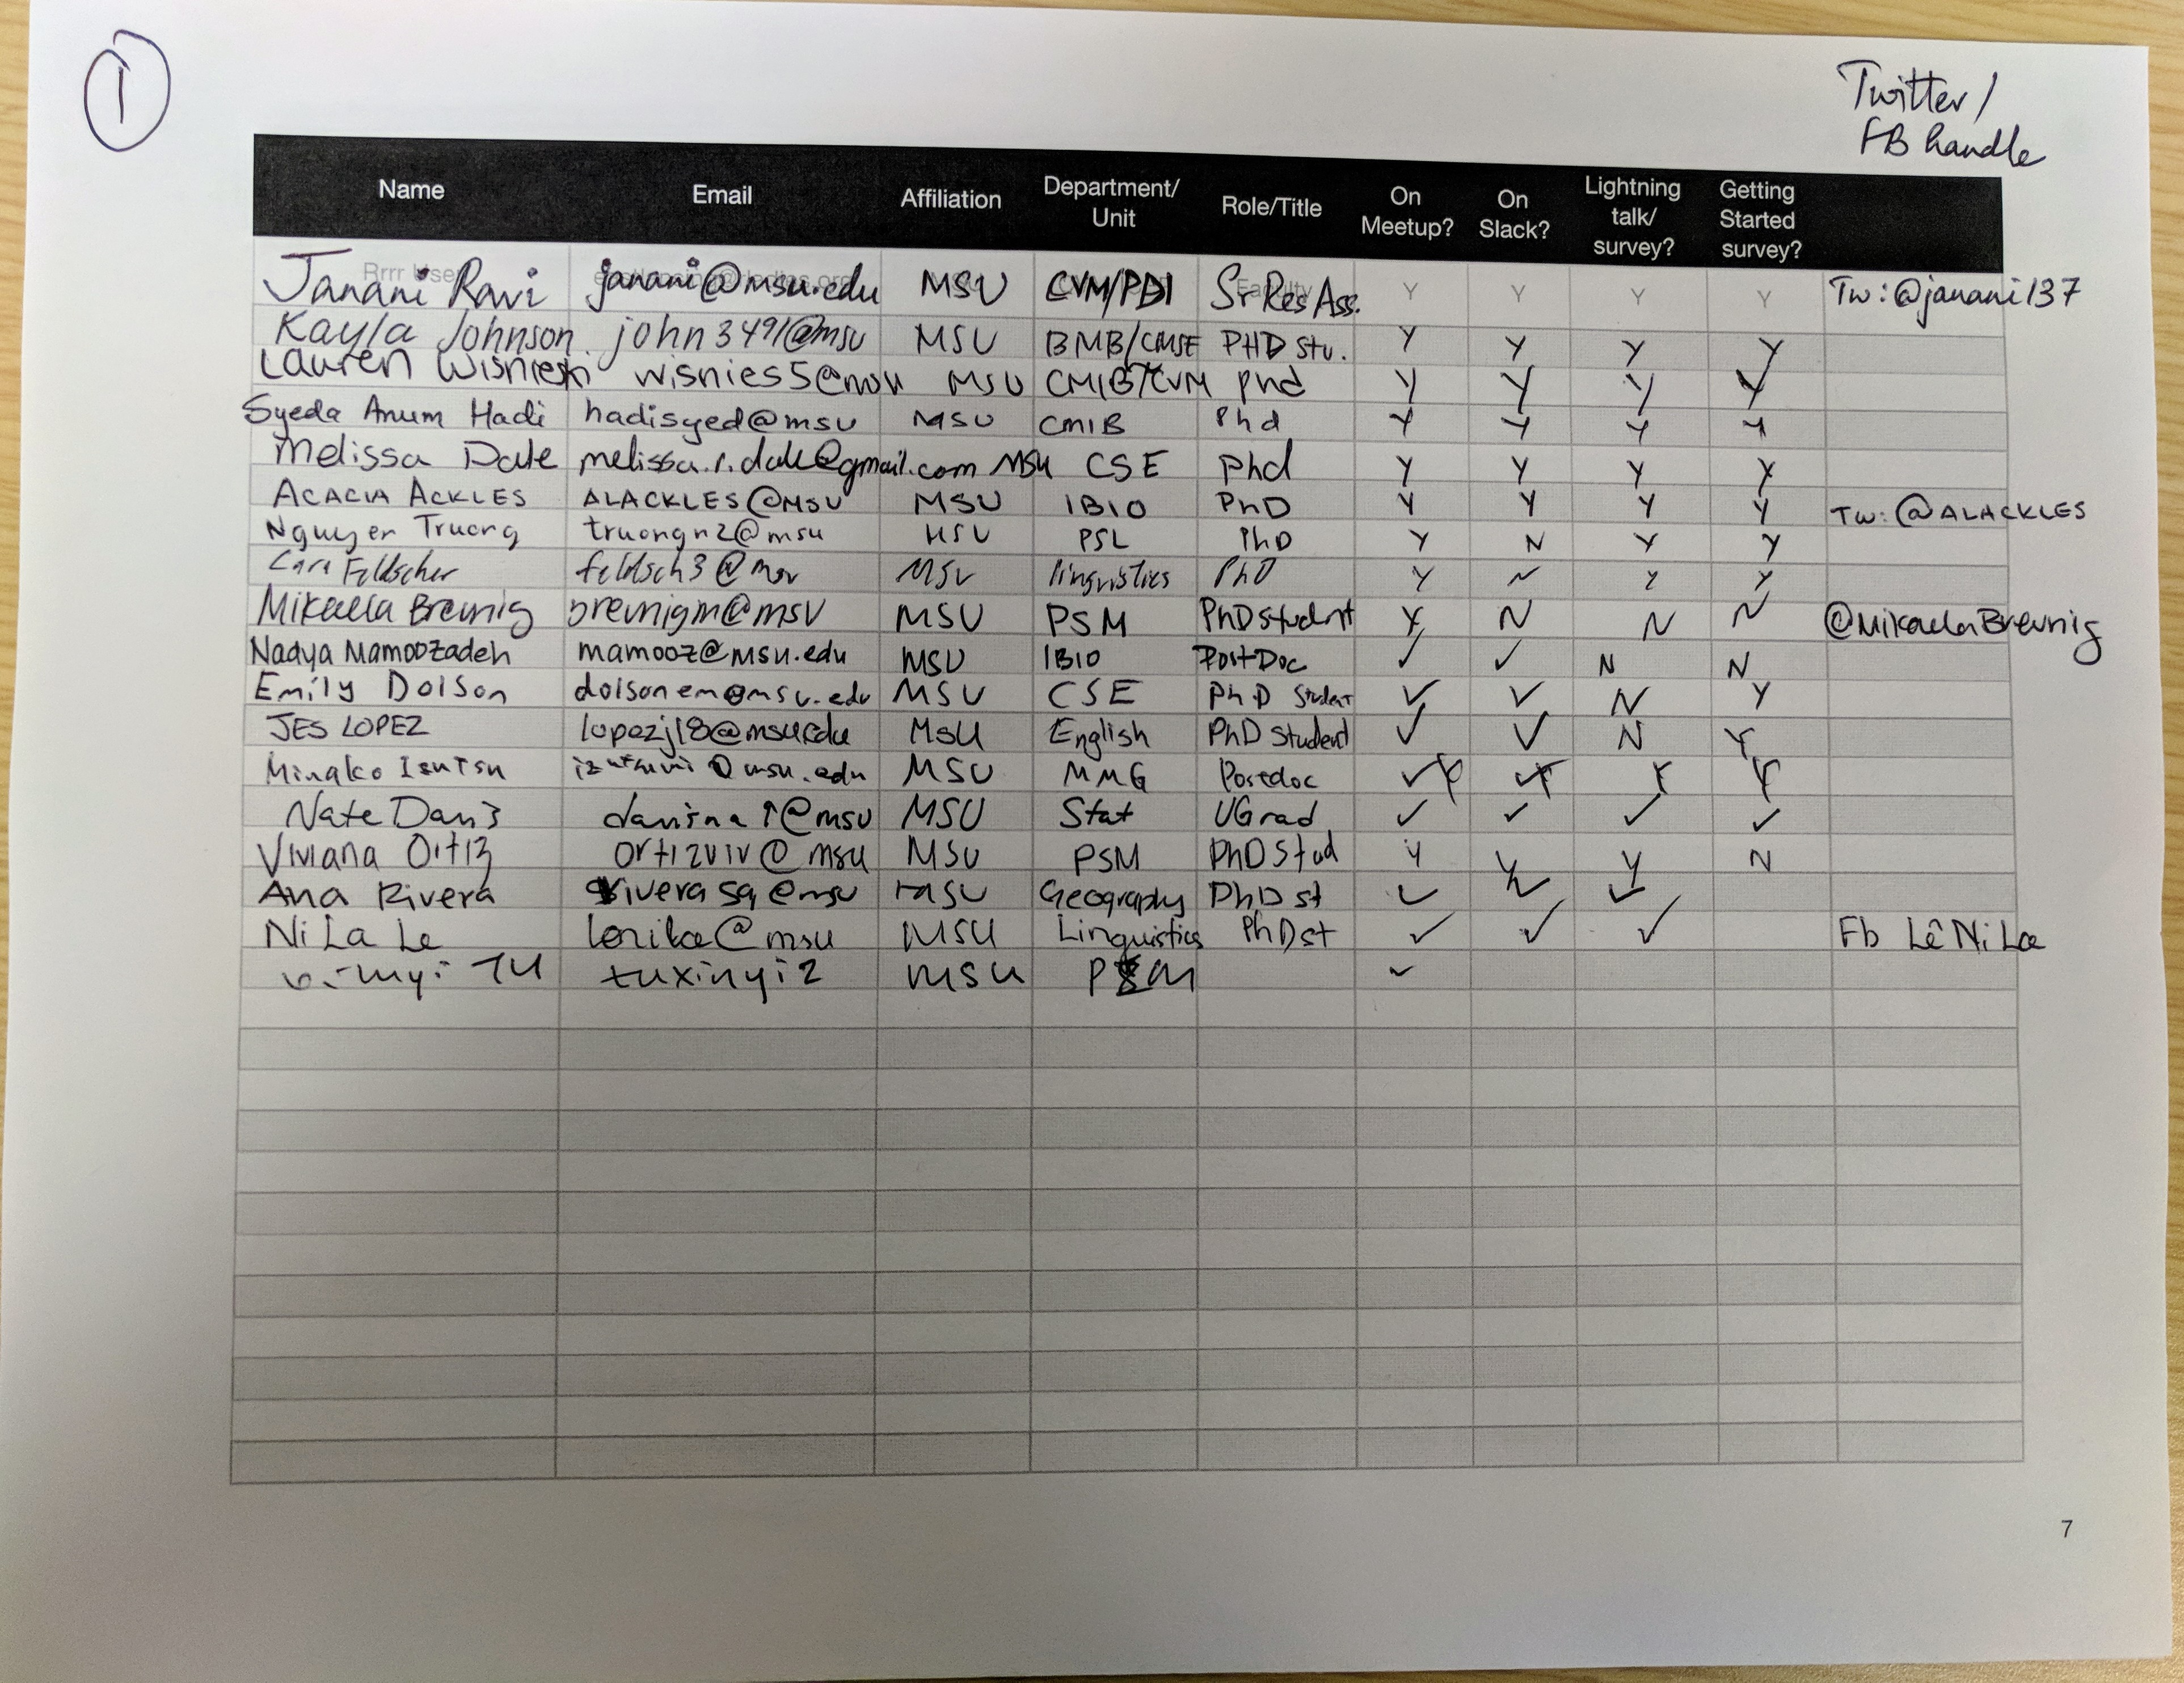 1
Twitter/
FB handle
Name Email Affiliation Department/ Unit Role/Title On Meetup? On Slack? Lightning talk/ survey? Getting Started survey?
Janani Ravi janani@msu.edu MSU CVM/PDI Sr Res Ass. Y Y Y Y Tw: @janani137
Kayla Johnson john3491@msu MSU BMB/CMSE PHD Stu. Y Y Y Y
Lauren Wisnieski wisnies5@msu MSU CMIB/CVM Phd Y Y Y Y
Syeda Anum Hadi hadisyed@msu MSU CMIB Phd Y Y Y Y
Melissa Dale melissa.r.dale@gmail.com MSU CSE Phd Y Y Y Y
ACACIA ACKLES ALACKLES@MSU MSU IBIO PhD Y Y Y Y TW: @ALACKLES
Nguyen Truong truongn2@msu MSU PSL PhD Y N Y Y
Cara Feldscher feldsch3@msu MSU linguistics PhD Y N Y Y
Mikaela Breunig breunigm@msu MSU PSM PhD Student Y N N N @MikaelaBreunig
Nadya Mamoozadeh mamooz@msu.edu MSU IBIO PostDoc ✓ ✓ N N
Emily Dolson dolsonem@msu.edu MSU CSE PhD Student ✓ ✓ N Y
JES LOPEZ lopezj18@msu.edu MSU English PhD Student ✓ ✓ N Y
Minako Izutsu MSU MMG Postdoc ✓Y ✓Y Y Y
Nate Davis MSU Stat UGrad ✓ ✓ ✓ ✓
Viviana Ortiz ortizviv@msu MSU PSM PhD Stud Y Y Y N
Ana Rivera MSU Geography PhD st ✓ ✓ ✓
Ni La Le lenila@msu MSU Linguistics PhD st ✓ ✓ ✓ Fb Lê Ni La
TU tuxinyi2 MSU PSM ✓
7